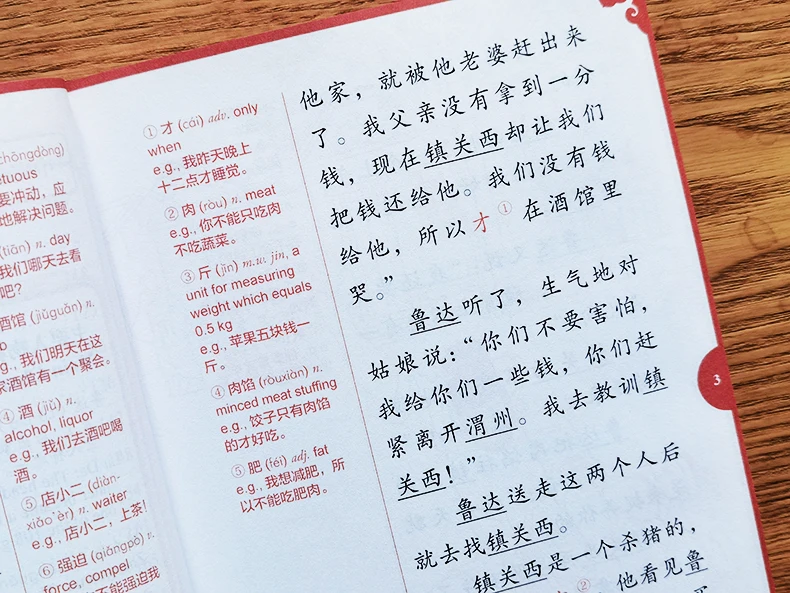 chōngdòng)
etuous
要冲动，应
地解决问题。
(tiān) n. day
我们哪天去看
吧？
酒馆 (jiǔguǎn) n.
e.g., 我们明天在这
家酒馆有一个聚会。
④ 酒 (jiǔ) n.
alcohol, liquor
e.g., 我们去酒吧喝
酒。
⑤ 店小二 (diàn-
xiǎo'èr) n. waiter
e.g., 店小二，上茶！
⑥ 强迫 (qiǎngpò) v.
force, compel
不能强迫我
① 才 (cái) adv. only
when
e.g., 我昨天晚上
十二点才睡觉。
② 肉 (ròu) n. meat
e.g., 你不能只吃肉
不吃蔬菜。
③ 斤 (jīn) m.w. jin, a
unit for measuring
weight which equals
0.5 kg
e.g., 苹果五块钱一
斤。
④ 肉馅 (ròuxiàn) n.
minced meat stuffing
e.g., 饺子只有肉馅
的才好吃。
⑤ 肥 (féi) adj. fat
e.g., 我想减肥，所
以不能吃肥肉。
他家，就被他老婆赶出来
了。我父亲没有拿到一分
钱，现在镇关西却让我们
把钱还给他。我们没有钱
给他，所以才①在酒馆里
哭。”
鲁达听了，生气地对
姑娘说：“你们不要害怕，
我给你们一些钱，你们赶
紧离开渭州。我去教训镇
关西！”
鲁达送走这两个人后
就去找镇关西。
镇关西是一个杀猪的，
② 他看见鲁
3